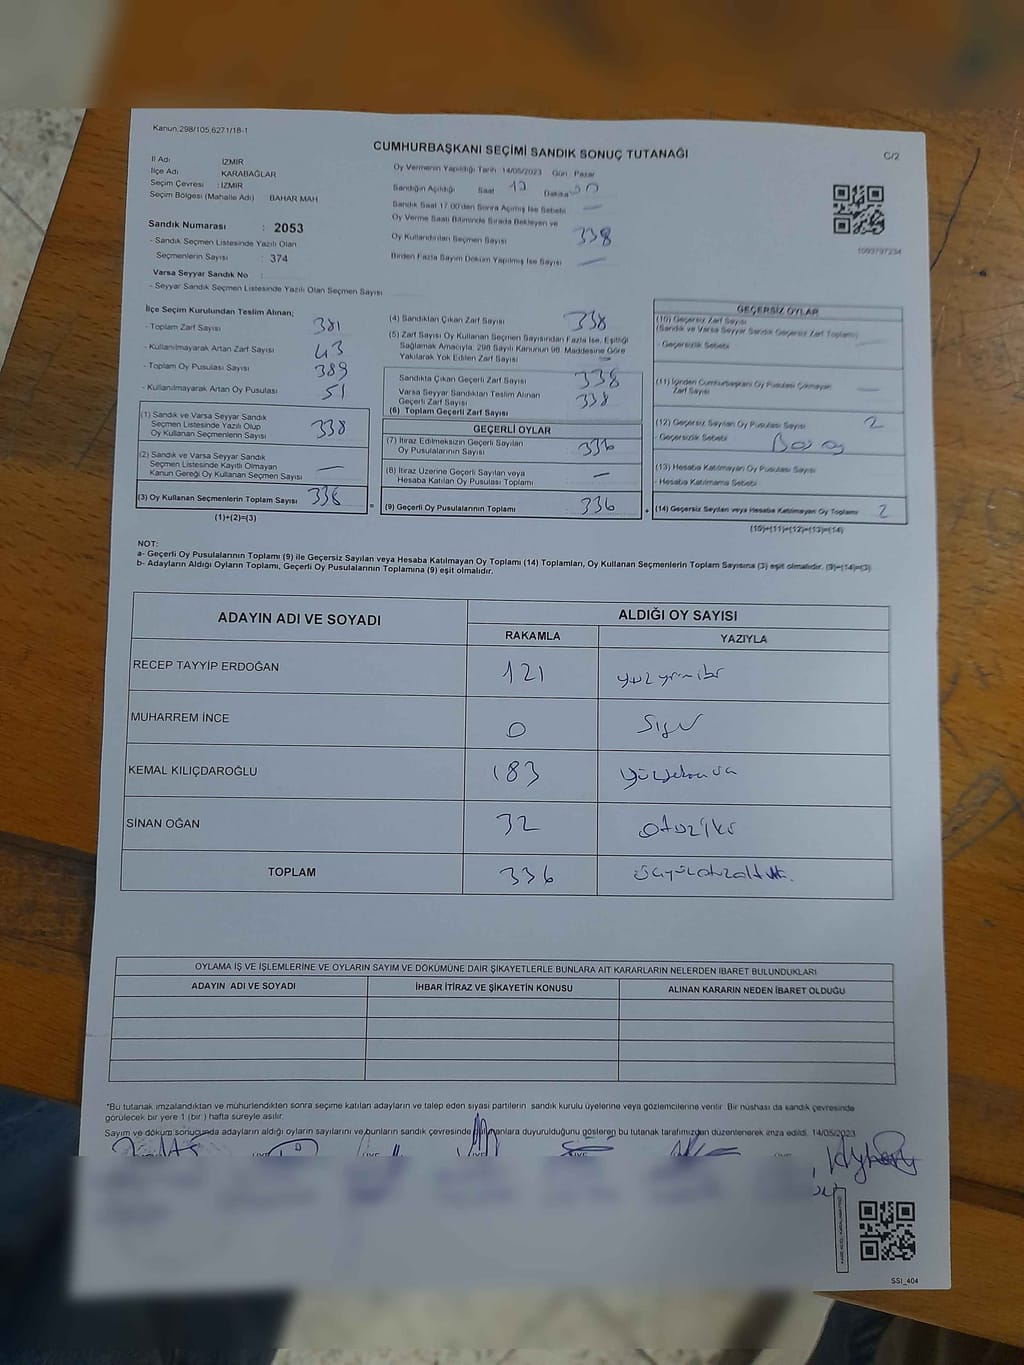 Kanun.298/105 6271/18-1
CUMHURBAŞKANI SEÇİMİ SANDIK SONUÇ TUTANAĞI
C/2
İl Adı : İZMİR
İlçe Adı KARABAĞLAR
Seçim Çevresi : İZMİR
Seçim Bölgesi (Mahalle Adı) BAHAR MAH
Oy Vermenin Yapıldığı Tarih 14/05/2023 Gün : Pazar
Sandığın Açıldığı Saat Dakika
Sandık Saat 17:00'den Sonra Açılmış İse Sebebi —
Oy Verme Saati Bitiminde Sırada Bekleyen ve
Oy Kullandırılan Seçmen Sayısı 338
Birden Fazla Sayım Döküm Yapılmış İse Sayısı —
1093797234
Sandık Numarası : 2053
- Sandık Seçmen Listesinde Yazılı Olan
Seçmenlerin Sayısı : 374
Varsa Seyyar Sandık No :
- Seyyar Sandık Seçmen Listesinde Yazılı Olan Seçmen Sayısı
İlçe Seçim Kurulundan Teslim Alınan;
- Toplam Zarf Sayısı 381
- Kullanılmayarak Artan Zarf Sayısı 43
- Toplam Oy Pusulası Sayısı 389
- Kullanılmayarak Artan Oy Pusulası 51
(1) Sandık ve Varsa Seyyar Sandık
Seçmen Listesinde Yazılı Olup
Oy Kullanan Seçmenlerin Sayısı 338
(2) Sandık ve Varsa Seyyar Sandık
Seçmen Listesinde Kayıtlı Olmayan
Kanun Gereği Oy Kullanan Seçmen Sayısı —
(3) Oy Kullanan Seçmenlerin Toplam Sayısı 338
(1)+(2)=(3)
(4) Sandıktan Çıkan Zarf Sayısı 338
(5) Zarf Sayısı Oy Kullanan Seçmen Sayısından Fazla İse, Eşitliği
Sağlamak Amacıyla; 298 Sayılı Kanunun 98. Maddesine Göre
Yakılarak Yok Edilen Zarf Sayısı —
Sandıkta Çıkan Geçerli Zarf Sayısı 338
Varsa Seyyar Sandıktan Teslim Alınan
Geçerli Zarf Sayısı 338
(6) Toplam Geçerli Zarf Sayısı
GEÇERLİ OYLAR
(7) İtiraz Edilmeksizin Geçerli Sayılan
Oy Pusulalarının Sayısı 336
(8) İtiraz Üzerine Geçerli Sayılan veya
Hesaba Katılan Oy Pusulası Toplamı —
= (9) Geçerli Oy Pusulalarının Toplamı 336
GEÇERSİZ OYLAR
(10) Geçersiz Zarf Sayısı
(Sandık ve Varsa Seyyar Sandık Geçersiz Zarf Toplamı) —
- Geçersizlik Sebebi
(11) İçinden Cumhurbaşkanı Oy Pusulası Çıkmayan
Zarf Sayısı —
(12) Geçersiz Sayılan Oy Pusulası Sayısı 2
- Geçersizlik Sebebi
(13) Hesaba Katılmayan Oy Pusulası Sayısı
- Hesaba Katılmama Sebebi
+ (14) Geçersiz Sayılan veya Hesaba Katılmayan Oy Toplamı 2
(10)+(11)+(12)+(13)=(14)
NOT:
a- Geçerli Oy Pusulalarının Toplamı (9) ile Geçersiz Sayılan veya Hesaba Katılmayan Oy Toplamı (14) Toplamları, Oy Kullanan Seçmenlerin Toplam Sayısına (3) eşit olmalıdır. (9)+(14)=(3)
b- Adayların Aldığı Oyların Toplamı, Geçerli Oy Pusulalarının Toplamına (9) eşit olmalıdır.
ADAYIN ADI VE SOYADI ALDIĞI OY SAYISI
RAKAMLA YAZIYLA
RECEP TAYYİP ERDOĞAN 121 yüzyirmibir
MUHARREM İNCE 0 Sıfır
KEMAL KILIÇDAROĞLU 183 yüzseksenüç
SİNAN OĞAN 32 otuziki
TOPLAM 336 üçyüzotuzaltı
OYLAMA İŞ VE İŞLEMLERİNE VE OYLARIN SAYIM VE DÖKÜMÜNE DAİR ŞİKAYETLERLE BUNLARA AİT KARARLARIN NELERDEN İBARET BULUNDUKLARI
ADAYIN ADI VE SOYADI İHBAR İTİRAZ VE ŞİKAYETİN KONUSU ALINAN KARARIN NEDEN İBARET OLDUĞU
*Bu tutanak imzalandıktan ve mühürlendikten sonra seçime katılan adayların ve talep eden siyasi partilerin sandık kurulu üyelerine veya gözlemcilerine verilir. Bir nüshası da sandık çevresinde
görülecek bir yere 1 (bir ) hafta süreyle asılır.
Sayım ve döküm sonucunda adayların aldığı oyların sayılarını ve bunların sandık çevresinde bulunanlara duyurulduğunu gösteren bu tutanak tarafımızdan düzenlenerek imza edildi. 14/05/2023
SSI_404